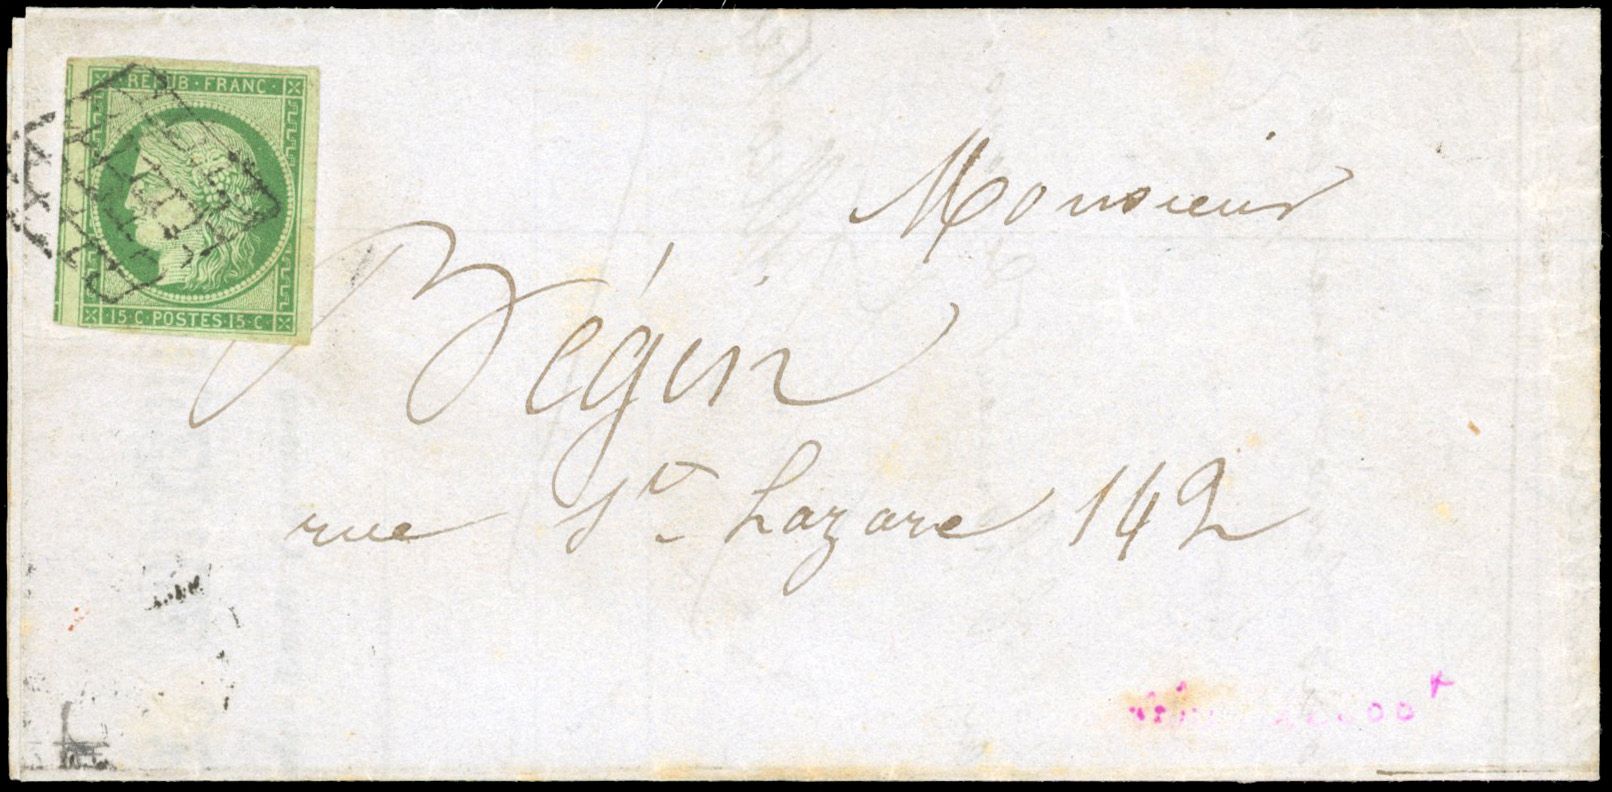 REPUB·FRANC·
·15·C·POSTES·15·C·
Monsieur
Bégin
rue St- Lazare 142